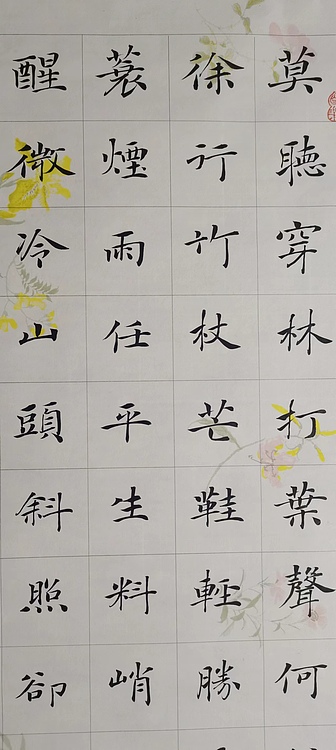 莫聽穿林打葉聲何
徐行竹杖芒鞋輕勝
蓑煙雨任平生料峭
醒微冷山頭斜照卻